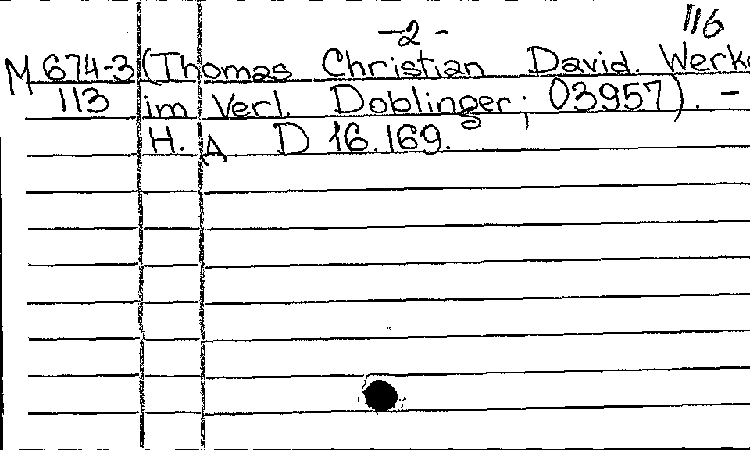 -2-
116
M 674-3 (Thomas Christian David. Werke
113 im Verl. Doblinger; 03957). -
H. A D 16.169.